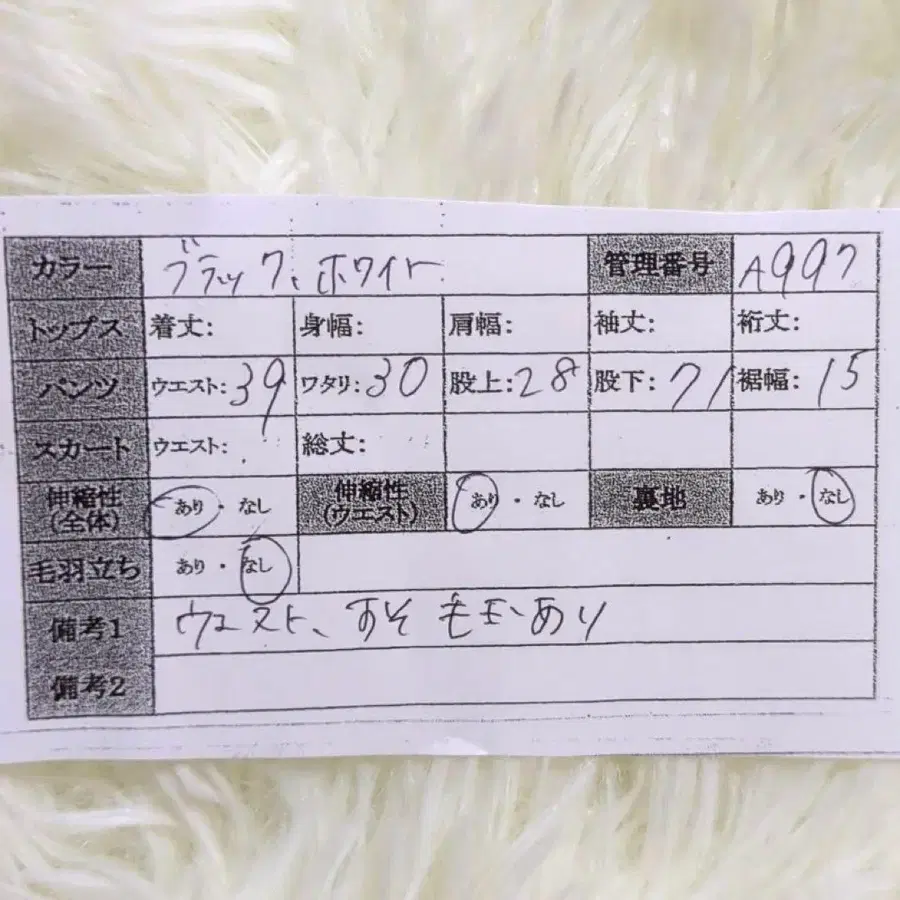 カラー ブラック、ホワイト 管理番号 A997
トップス 着丈: 身幅: 肩幅: 袖丈: 裄丈:
パンツ ウエスト:39 ワタリ:30 股上:28 股下:71 裾幅:15
スカート ウエスト: 総丈:
伸縮性(全体) あり・なし 伸縮性(ウエスト) あり・なし 裏地 あり・なし
毛羽立ち あり・なし
備考1 ウエスト、すそ 毛玉あり
備考2